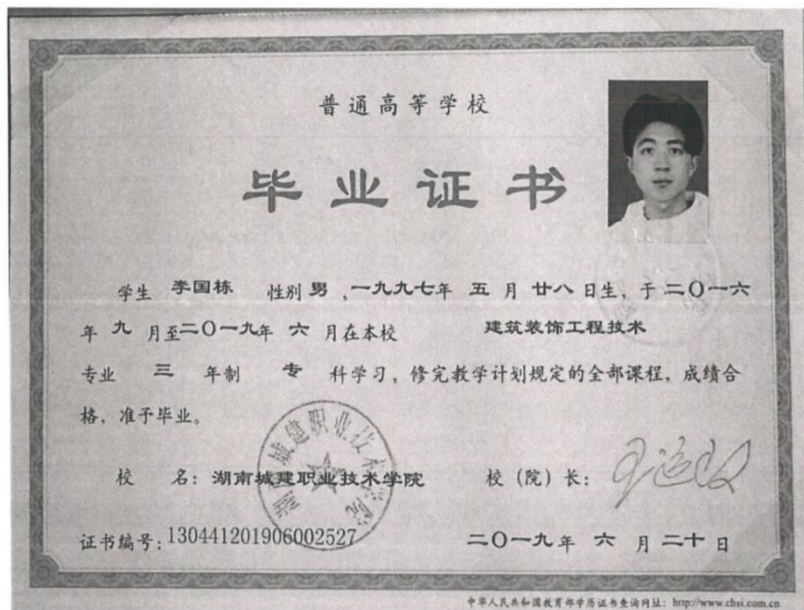 普通高等学校
毕业证书
学生 李国栋 性别 男 ,一九九七年 五 月 廿八 日生, 于二〇一六
年 九 月至二〇一九年 六 月在本校 建筑装饰工程技术
专业 三 年制 专 科学习, 修完教学计划规定的全部课程, 成绩合
格, 准予毕业。
湖南城建职业技术学院
校 名: 湖南城建职业技术学院 校 (院) 长:
证书编号: 130441201906002527 二〇一九年 六 月 二十 日
中华人民共和国教育部学历证书查询网址: http://www.chsi.com.cn